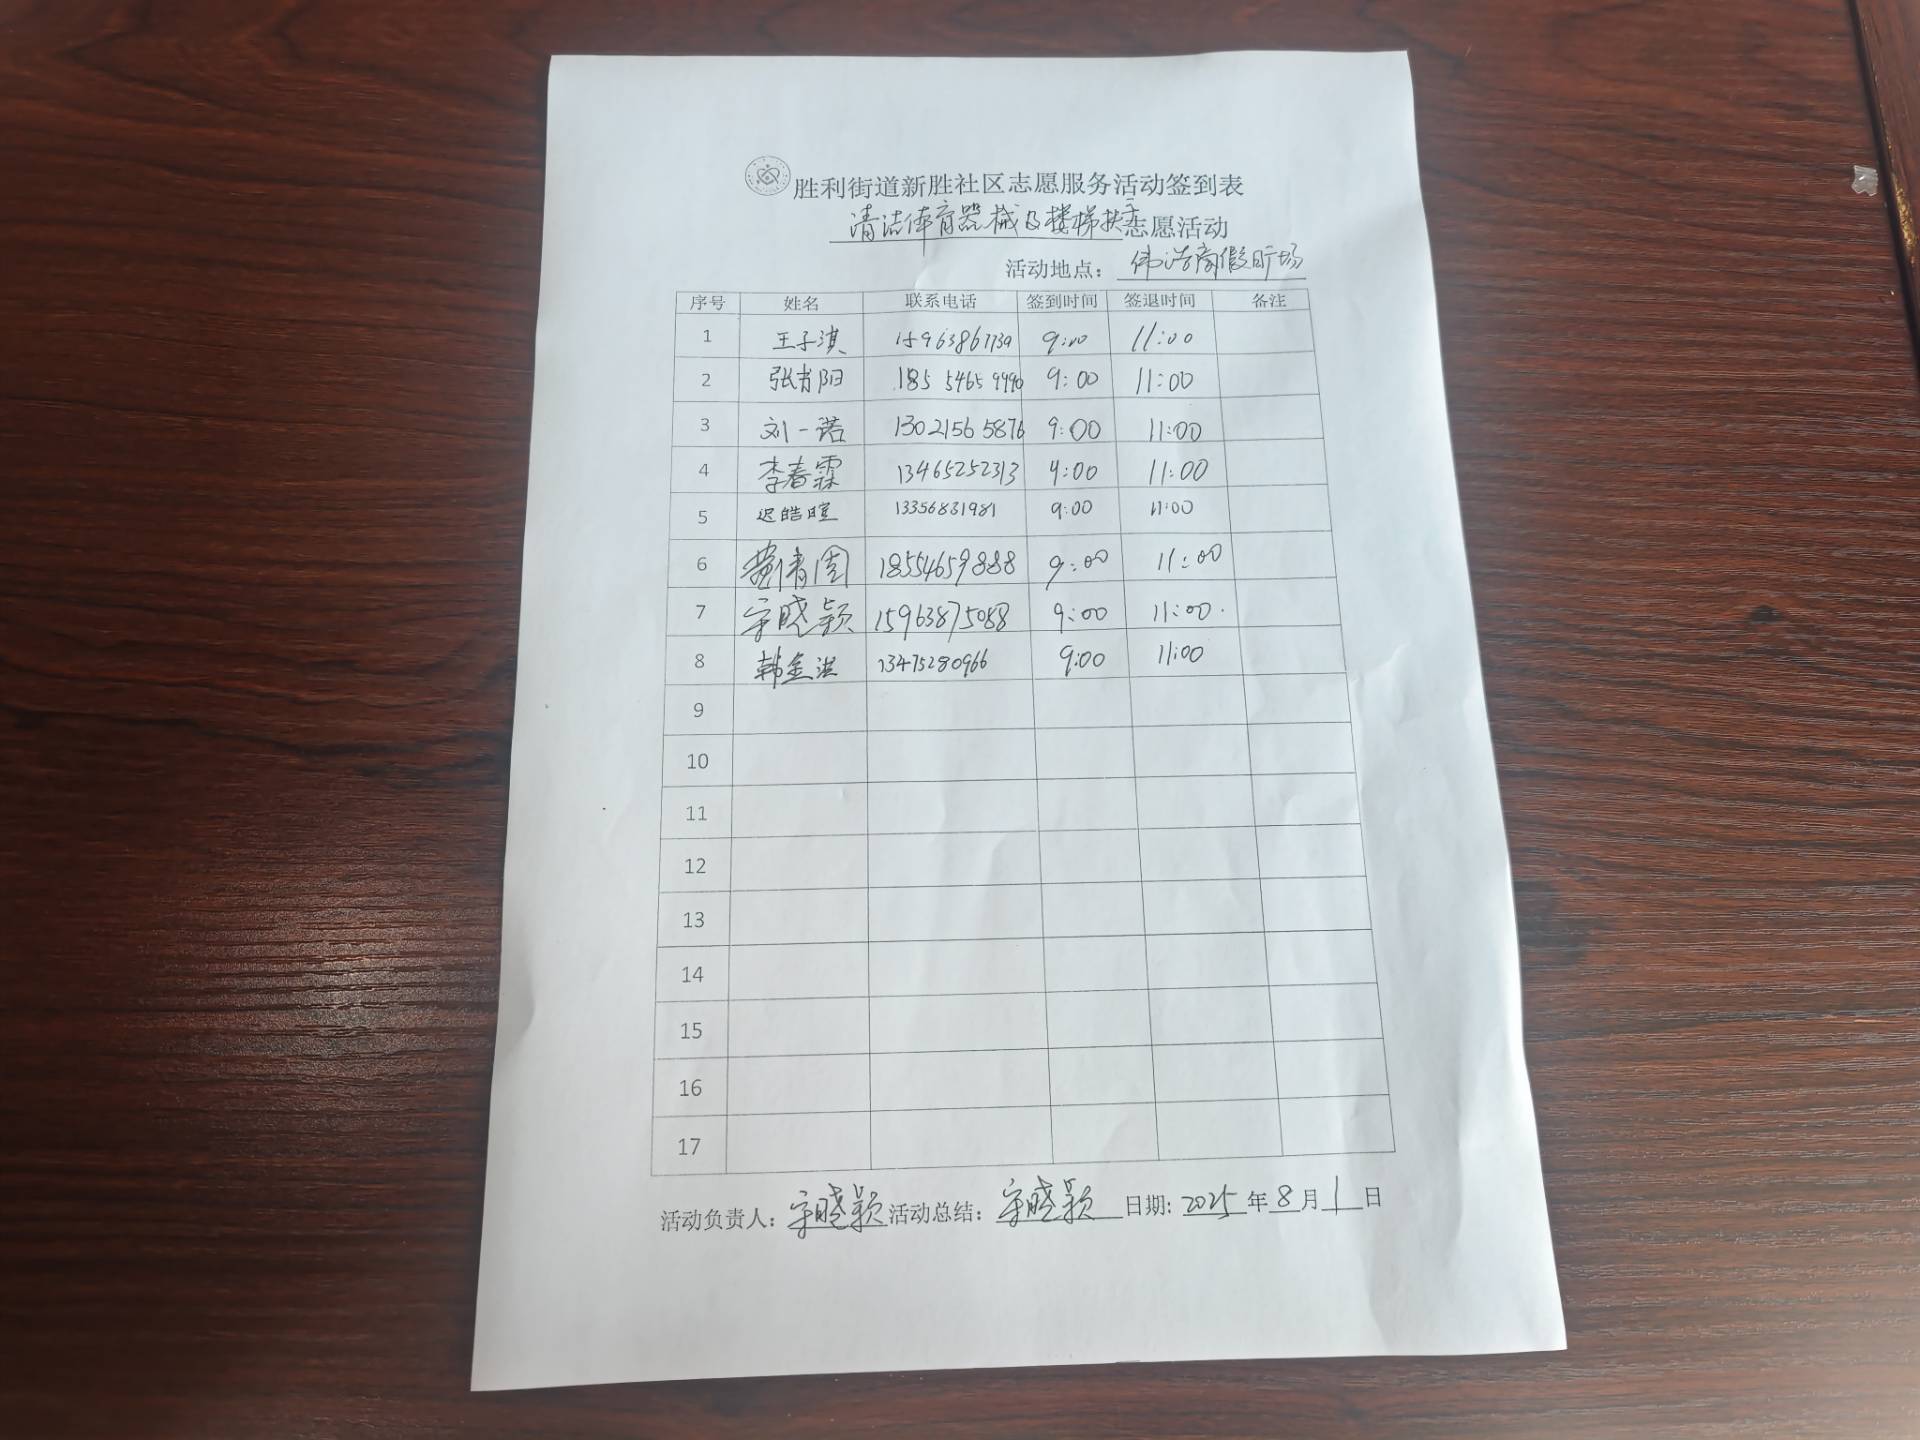 胜利街道新胜社区志愿服务活动签到表
清洁体育器械及楼梯扶手志愿活动
活动地点：伟浩商假旷场
序号 姓名 联系电话 签到时间 签退时间 备注
1 王子淇 15963867739 9:00 11:00
2 张肖阳 185 5465 9990 9:00 11:00
3 刘一诺 13021565876 9:00 11:00
4 李春霖 13465252313 9:00 11:00
5 迟皓暄 13356831981 9:00 11:00
6 18554659888 9:00 11:00
7 宋晓颖 15963875088 9:00 11:00.
8 韩金洪 13475280966 9:00 11:00
9
10
11
12
13
14
15
16
17
活动负责人：宋晓颖 活动总结：宋晓颖 日期: 2025年8月1日